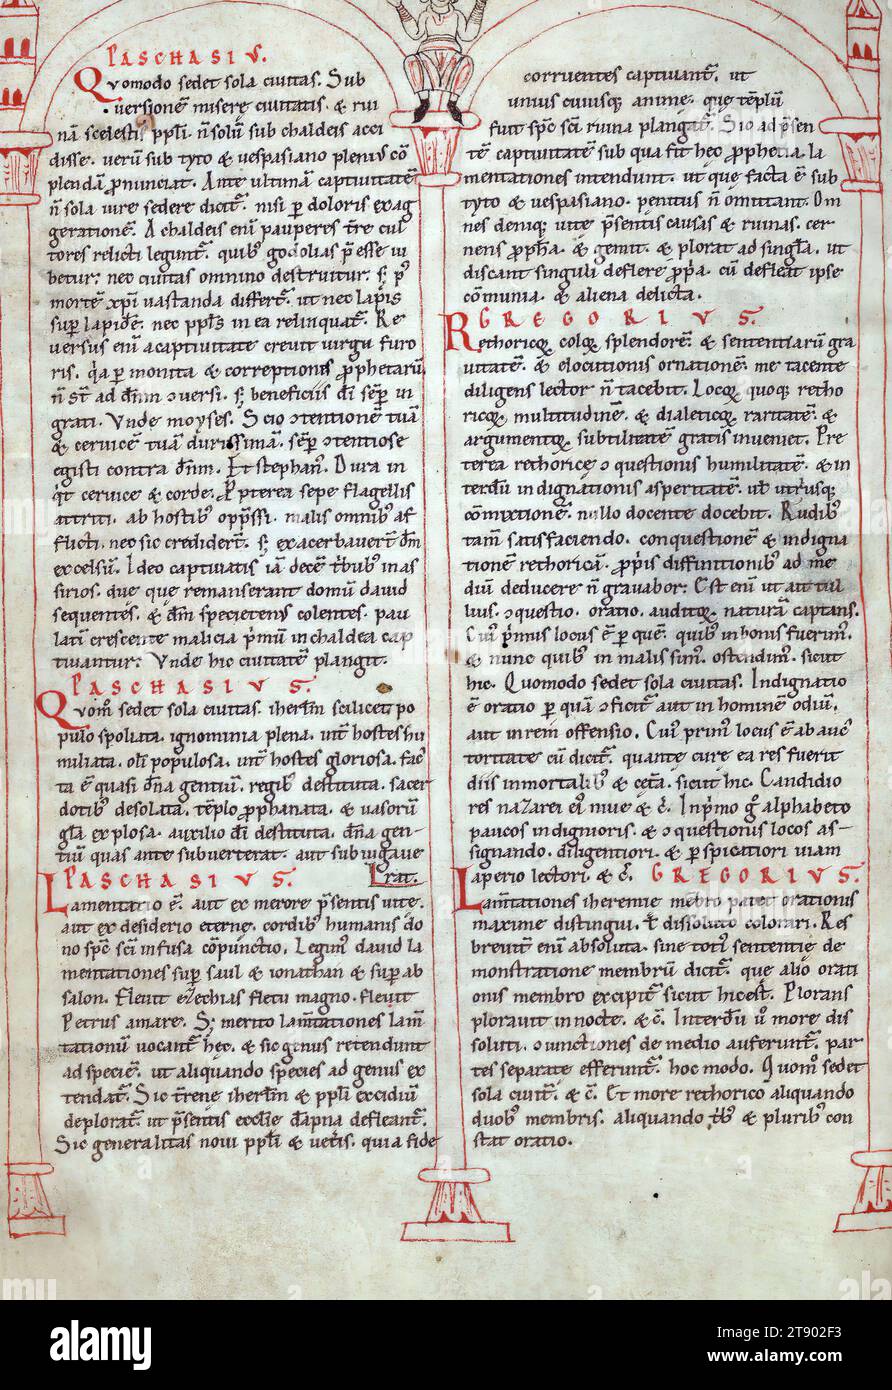 PASCHASIVS.
Quomodo sedet sola ciuitas. Sub
uersionem miserę ciuitatis. & rui
nā scelesti ppl̄i. n̄ solū sub chaldeis acci
disse. uerū sub tyto & uespasiano plenius cō
plendā pronunciat. Ante ultimā captiuitatē
n̄ sola iure sedere dicit᷒. nisi p doloris exag
gerationē. A chaldeis eni pauperes tr̄e cul
tores relicti legunt᷒. quib᷒ godolias p̄esse iu
betur; nec ciuitas omnino destruitur. s; p᷒
mortē xp̄i uastanda differt᷒. ut nec lapis
sup lapidē. nec ppl̄s in ea relinquat᷒. Re
uersus eni a captiuitate creuit uirga furo
ris. q̇a p monita & correptionis prophetarū
n̄ st̄ ad dn̄m ɔuersi. s; beneficiis dī sēp in
grati. Vnde moyses. Scio ɔtentionē tuā
& ceruicē tuā durissimā. sēp ɔtentiose
egisti contra dn̄m. Et stephan᷒. Dura in
q̇t ceruice & corde. Propterea sepe flagellis
attriti. ab hostib᷒ opp̄ssi. malis omnib᷒ af
flicti. nec sic credidert᷒. s; exacerbauert᷒ dm̄
excelsū. Ideo captiuatis iā decē trib᷒ in as
sirios. due que remanserant domū dauid
sequentes. & dm̄ specietenus colentes. pau
latī crescente malicia p̄mū in chaldea cap
tiuantur; Vnde hic ciuitatē plangit.
PASCHASIVS.
Quom̊ sedet sola ciuitas. ihrl̄m scilicet po
pulo spoliata. ignominia plena. int̄ hostes hu
miliata. olī populosa. int̄ hostes gloriosa. fac
ta ē quasi dn̄a gentiū. regib᷒ destituta. sacer
dotib᷒ desolata. tēplo prophanata. & uasorū
gl̄a explosa. auxilio dī destituta. dn̄a gen
tiū quas ante subuerterat. aut subiugaue
PASCHASIVS. rat.
Lamentatio ē. aut ex merore p̄sentis uitę.
aut ex desiderio eternę. cordib᷒ humanis do
no sp̄c sc̄i infusa cōpunctio. Legim᷒ dauid la
mentationes sup saul & ionathan & sup ab
salon. Fleuit ezechias fletu magno. fleuit
Petrus amare. S; merito lam̄tationes lam̄
tationū uocant᷒ hęc. & sic genus retendunt
ad speciē. ut aliquando species ad genus ex
tendat᷒. Sic trene ihrl̄m & ppl̄i excidiū
deplorat᷒. ut p̄sentis ęccl̄ie dāpna defleant᷒.
Sic generalitas noui ppl̄i & uet̄is. quia fide
corruentes captiuant᷒. ut
unius cuiusq; anime. que tēplū
fuit sp̄c sc̄i ruina plangat᷒. Sic ad p̄sen
tē captiuitatē sub qua fit hec prophetia. la
mentationes intendunt. ut que facta ē sub
tyto & uespasiano. penitus n̄ omittant. Om
nes deniq; uitę p̄sentis causas & ruinas. cer
nens proph̄a. & gemit. & plorat ad singl̄a. ut
discant singuli deflere prop̄a. cū defleat ipse
cōmunia. & aliena delicta.
GREGORIVS.
Rethoricoꝝ coloꝝ splendorē. & sententiarū gra
uitatē. & elocutionis ornationē. me tacente
diligens lector n̄ tacebit. Locoꝝ quoq; retho
ricoꝝ multitudinē. & dialeticoꝝ raritatē. &
argumentoꝝ subtilitatē gratis inueniet. Pre
terea rethoricę ɔquestionis humilitatē. & in
terdū indignationis asperitatē. uł utriusq;
cōmixtionē. nullo docente docebit. Rudib᷒
tam̄ satisfaciendo. conquestionē & indigna
tionē rethoricā. prop̄is diffinitionib᷒ ad me
diū deducere n̄ grauabor; Est eni ut ait tul
lius. ɔquestio. oratio. auditoꝝ naturā captans.
Cui᷒ p̄mus locus ē p quē. quib᷒ in bonis fuerim᷒.
& nunc quib᷒ in malis sim᷒. ostendim᷒. sicut
hic. Quomodo sedet sola ciuitas. Indignatio
ē oratio p quā ɔficit᷒ aut in hominē odiū.
aut in rem offensio. Cui᷒ prim᷒ locus ē ab auc
toritate cū dicit᷒. quante cure ea res fuerit
diis inmortalib᷒ & cet̄a. sicut hic. Candidio
res nazarei ei᷒ niue & c̄. In p̄mo g̊ alphabeto
paucos indignationis. & ɔquestionis locos as
signando. diligentiori. & pspicatiori uiam
aperio lectori. & c̄. GREGORIVS.
Lam̄tationes iheremie mēbro patet orationis
maxime distingui. uł dissoluto colorari. Res
breuit̄ eni absoluta. sine toti᷒ sententie de
monstratione membrū dicit᷒. que alio orati
onis membro excipit᷒ sicut hic est. Plorans
plorauit in nocte. & c̄. Interdū ů more dis
soluti. ɔiunctiones de medio auferunt᷒. par
tes separate efferunt᷒. hoc modo. Quom̊ sedet
sola ciuit̄. & c̄. Et more rethorico aliquando
duob᷒ membris. aliquando trib᷒ & plurib᷒ con
stat oratio.
alamy
Image ID: 2T902F3
www.alamy.com